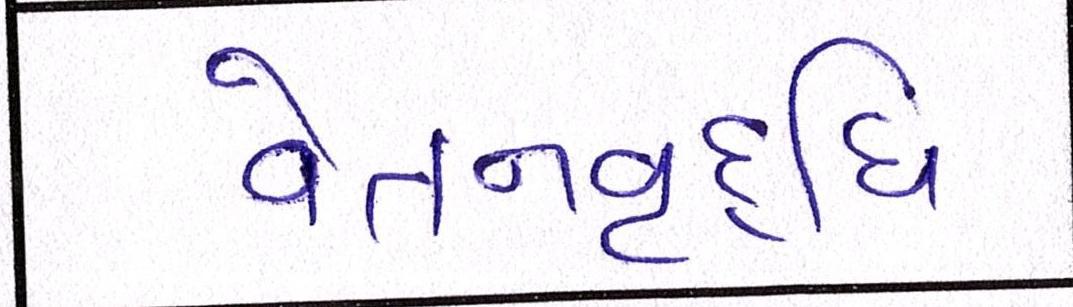 વેતનવૃદ્ધિ